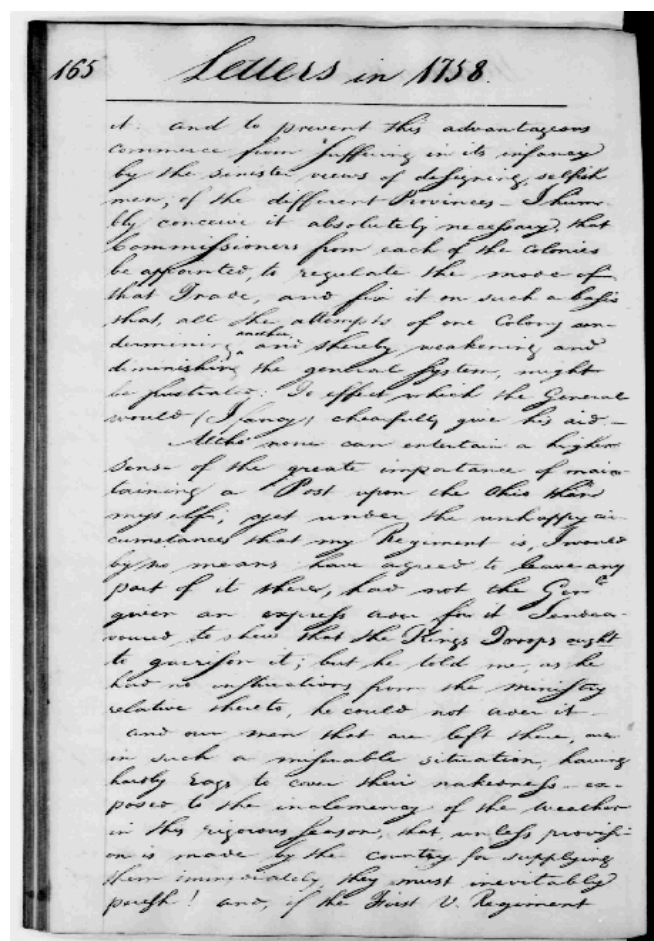 165 Letters in 1758.
it: and to prevent this advantageous
commerce from suffering in its infancy
by the sinester views of designing, selfish
men, of the different Provinces - I hum-
bly conceive it absolutely necessary, that
Commissioners from each of the Colonies
be appointed, to regulate the mode of
that Trade, and fix it on such a basis
that, all the attempts of one Colony un-
another,
dermining and thereby weakening and
diminishing the general System, might
be frustrated: To effect which the General
would (I fancy) chearfully give his aid -
Altho none can entertain a higher
Sense of the great importance of main-
taining a Post upon the Ohio than
myself; yet under the unhappy cir-
cumstances that my Regiment is, I would
by no means have agreed to leave any
part of it there, had not the Genl.
given an express order for it I endea-
voured to shew that the Kings Troops ought
to garrison it; but he told me, as he
had no instructions from the ministry
relative thereto, he could not order it -
and our men that are left there, are
in such a miserable situation, having
hardly rags to cover their nakedness - ex-
posed to the inclemency of the weather
in this rigorous season, that, unless provisi-
on is made by the country for supplying
them immediately, they must inevitably
perish! and, if the First V. Regiment